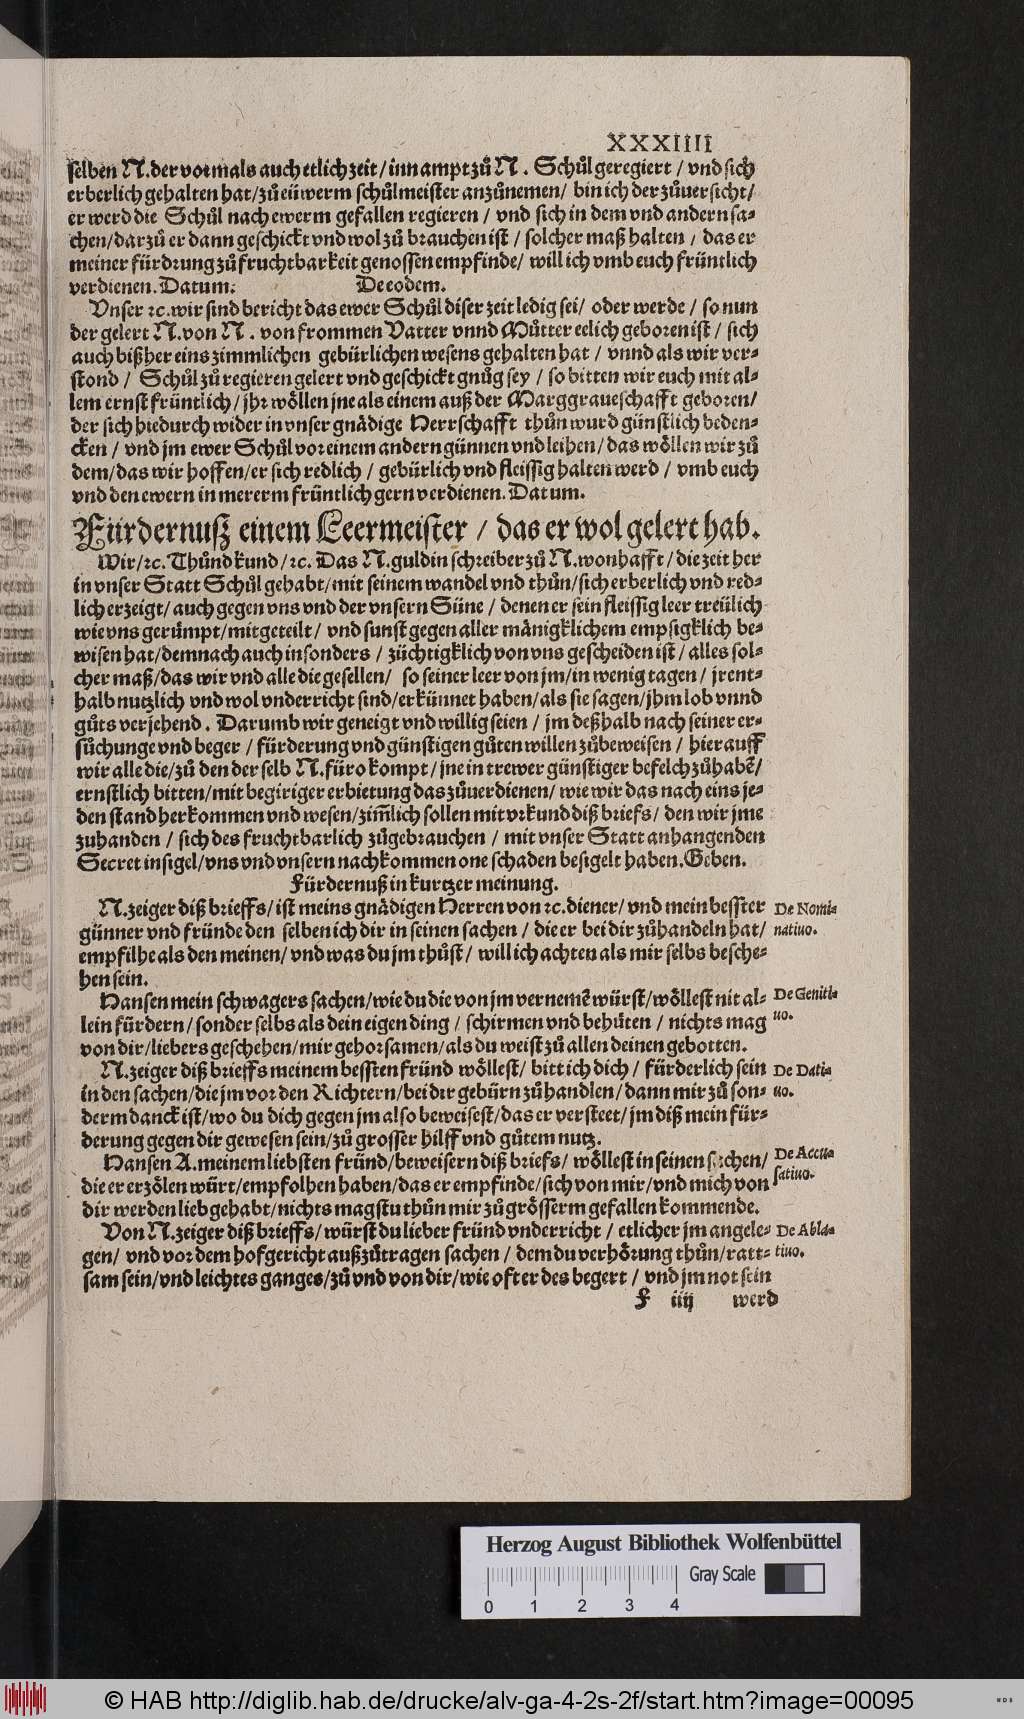 XXXIIII
selben N. der vormals auch etlich zeit / inn ampt zů N. Schůl geregiert / vnd sich
erberlich gehalten hat / zů eüwerm schůlmeister anzůnemen / bin ich der zůuersicht /
er werd die Schůl nach ewerm gefallen regieren / vnd sich in dem vnd andern sa-
chen / darzů er dann geschickt vnd wol zů brauchen ist / solcher maß halten / das er
meiner fürdrung zů fruchtbarkeit genossen empfinde / will ich vmb euch früntlich
verdienen. Datum. De eodem.
Vnser ꝛc. wir sind bericht das ewer Schůl diser zeit ledig sei / oder werde / so nun
der gelert N. von N. von frommen Vatter vnnd Můtter eelich geboren ist / sich
auch bißher eins zimmlichen gebürlichen wesens gehalten hat / vnnd als wir ver-
stond / Schůl zů regieren gelert vnd geschickt gnůg sey / so bitten wir euch mit al-
lem ernst früntlich / jhr wöllen jne als einem auß der Marggraueschafft geboren /
der sich hiedurch wider in vnser gnädige Herrschafft thůn wurd günstlich beden-
cken / vnd jm ewer Schůl vor einem andern günnen vnd leihen / das wöllen wir zů
dem / das wir hoffen / er sich redlich / gebürlich vnd fleissig halten werd / vmb euch
vnd den ewern in mererm früntlich gern verdienen. Datum.
Fürdernuß einem Leermeister / das er wol gelert hab.
Wir / ꝛc. Thůnd kund / ꝛc. Das N. guldin schreiber zů N. wonhafft / die zeit her
in vnser Statt Schůl gehabt / mit seinem wandel vnd thůn / sich erberlich vnd red-
lich erzeigt / auch gegen vns vnd der vnsern Süne / denen er sein fleissig leer treülich
wie vns gerümpt / mitgeteilt / vnd sunst gegen aller mänigklichem empsigklich be-
wisen hat / demnach auch insonders / züchtigklich von vns gescheiden ist / alles sol-
cher maß / das wir vnd alle die gesellen / so seiner leer von jm / in wenig tagen / jrent-
halb nutzlich vnd wol vnderricht sind / erkünnet haben / als sie sagen / jhm lob vnnd
gůts verjehend. Darumb wir geneigt vnd willig seien / jm deßhalb nach seiner er-
sůchunge vnd beger / fürderung vnd günstigen gůten willen zůbeweisen / hierauff
wir alle die / zů den der selb N. füro kompt / jne in trewer günstiger befelch zůhabē /
ernstlich bitten / mit begiriger erbietung das zůuerdienen / wie wir das nach eins je-
den stand herkommen vnd wesen / zim̄lich sollen mit vrkund diß briefs / den wir jme
zuhanden / sich des fruchtbarlich zůgebrauchen / mit vnser Statt anhangenden
Secret insigel / vns vnd vnsern nachkommen one schaden besigelt haben. Geben.
Fürdernuß in kurtzer meinung.
N. zeiger diß brieffs / ist meins gnädigen Herren von ꝛc. diener / vnd mein besster
De Nomi-
günner vnd fründe den selben ich dir in seinen sachen / die er bei dir zůhandeln hat /
natiuo.
empfilhe als den meinen / vnd was du jm thůst / will ich achten als mir selbs besche-
hen sein.
Hansen mein schwagers sachen / wie du die von jm vernemē würst / wöllest nit al-
De Geniti-
lein fürdern / sonder selbs als dein eigen ding / schirmen vnd behüten / nichts mag
uo.
von dir / liebers geschehen / mir gehorsamen / als du weist zů allen deinen gebotten.
N. zeiger diß brieffs meinem bessten fründ wöllest / bitt ich dich / fürderlich sein
De Dati-
in den sachen / die jm vor den Richtern / bei dir gebürn zůhandlen / dann mir zů son-
uo.
derm danck ist / wo du dich gegen jm also beweisest / das er versteet / jm diß mein für-
derung gegen dir gewesen sein / zů grosser hilff vnd gůtem nutz.
Hansen A. meinem liebsten fründ / beweisern diß briefs / wöllest in seinen sachen /
De Accu-
satiuo.
die er erzölen würt / empfolhen haben / das er empfinde / sich von mir / vnd mich von
dir werden lieb gehabt / nichts magstu thůn mir zů grösserm gefallen kommende.
Von N. zeiger diß brieffs / würst du lieber fründ vnderricht / etlicher jm angele-
De Abla-
gen / vnd vor dem hofgericht außzůtragen sachen / dem du verhörung thůn / ratt-
tiuo.
sam sein / vnd leichtes ganges / zů vnd von dir / wie oft er des begert / vnd jm not sein
F iiij werd
Herzog August Bibliothek Wolfenbüttel
Gray Scale
0 1 2 3 4
© HAB http://diglib.hab.de/drucke/alv-ga-4-2s-2f/start.htm?image=00095